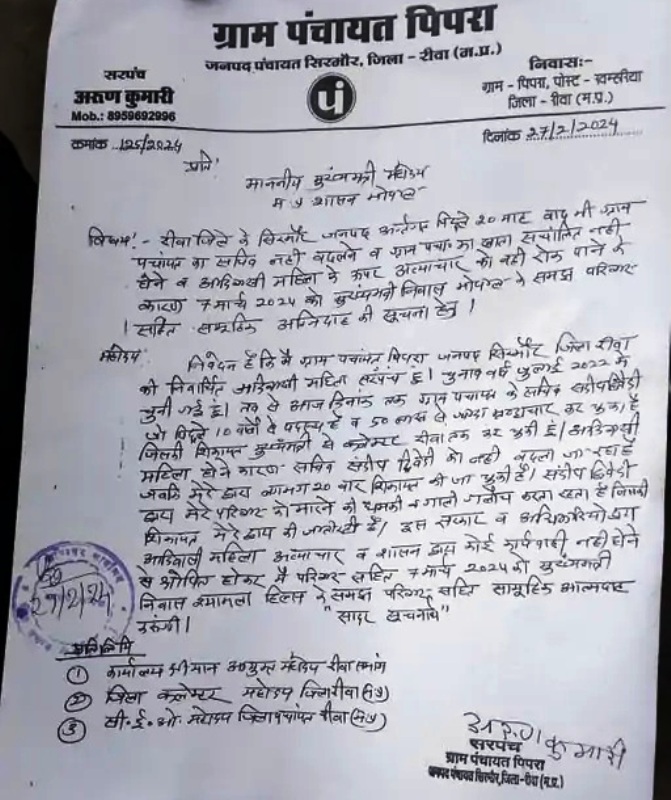 ग्राम पंचायत पिपरा
जनपद पंचायत सिरमौर, जिला - रीवा (म.प्र.)
सरपंच
अरुण कुमारी
Mob.: 8959692996
निवास:-
ग्राम - पिपरा, पोस्ट - खम्हरिया
जिला - रीवा (म.प्र.)
पां
क्रमांक 125/2024
दिनांक 27/2/2024
प्रति
माननीय मुख्यमंत्री महोदय
म प्र शासन भोपाल
विषय:- रीवा जिले के सिरमौर जनपद अंतर्गत पिछले 20 माह बाद भी ग्राम
पंचायत का सचिव नहीं बदलने व ग्राम पंचा. का खाता संचालित नहीं
होने व आदिवासी महिला के ऊपर अत्याचार को नहीं रोक पाने के
कारण 7 मार्च 2024 को मुख्यमंत्री निवास भोपाल के समक्ष परिवार
सहित सामूहिक अग्निदाह की सूचना हेतु।
महोदय,
निवेदन है कि मैं ग्राम पंचायत पिपरा जनपद सिरमौर जिला रीवा
की निर्वाचित आदिवासी महिला सरपंच हूं। चुनाव वर्ष जुलाई 2022 में
चुनी गई हूं। तब से आज दिनांक तक ग्राम पंचायत के सचिव संदीप द्विवेदी
जो पिछले 10 वर्षों से पदस्थ है व 50 लाख से ज्यादा भ्रष्टाचार कर चुका है
जिसकी शिकायत मुख्यमंत्री से कलेक्टर रीवा तक कर चुकी हूं। आदिवासी
महिला होने कारण सचिव संदीप द्विवेदी को नहीं बदला जा रहा है
जबकि मेरे द्वारा लगभग 20 बार शिकायत की जा चुकी है। संदीप द्विवेदी
द्वारा मेरे परिवार को मारने की धमकी व गाली गलौच करता रहता है जिसकी
शिकायत मेरे द्वारा की जाती रही है। इस सरकार व अधिकारियों द्वारा
आदिवासी महिला अत्याचार व शासन द्वारा कोई कार्यवाही नहीं होने
से क्षोभित होकर मैं परिवार सहित 7 मार्च 2024 को मुख्यमंत्री
निवास श्यामला हिल्स के समक्ष परिवार सहित सामूहिक आत्मदाह
करूंगी।
"सादर सूचनार्थ"
27/2/24
प्रतिलिपि
① कार्यालय श्रीमान आयुक्त महोदय रीवा संभाग
② जिला कलेक्टर महोदय जिला रीवा (म.प्र)
③ सी.ई.ओ. महोदय जिला पंचायत रीवा (म.प्र)
अरुण कुमारी
सरपंच
ग्राम पंचायत पिपरा
जनपद पंचायत सिरमौर, जिला-रीवा (म.प्र.)